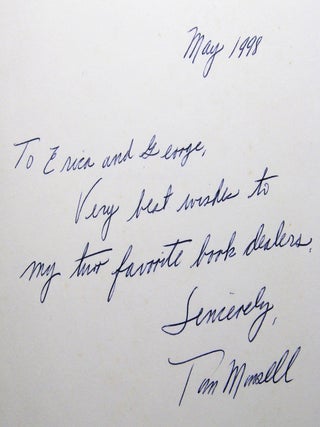 May 1998
To Erica and George,
Very best wishes to
my two favorite book dealers.
Sincerely,
Tom Monsell